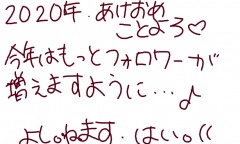 2020年.あけおめ
ことよろ♡
今年はもっとフォロワーが
増えますように…♪
よし。ねます.はい。((